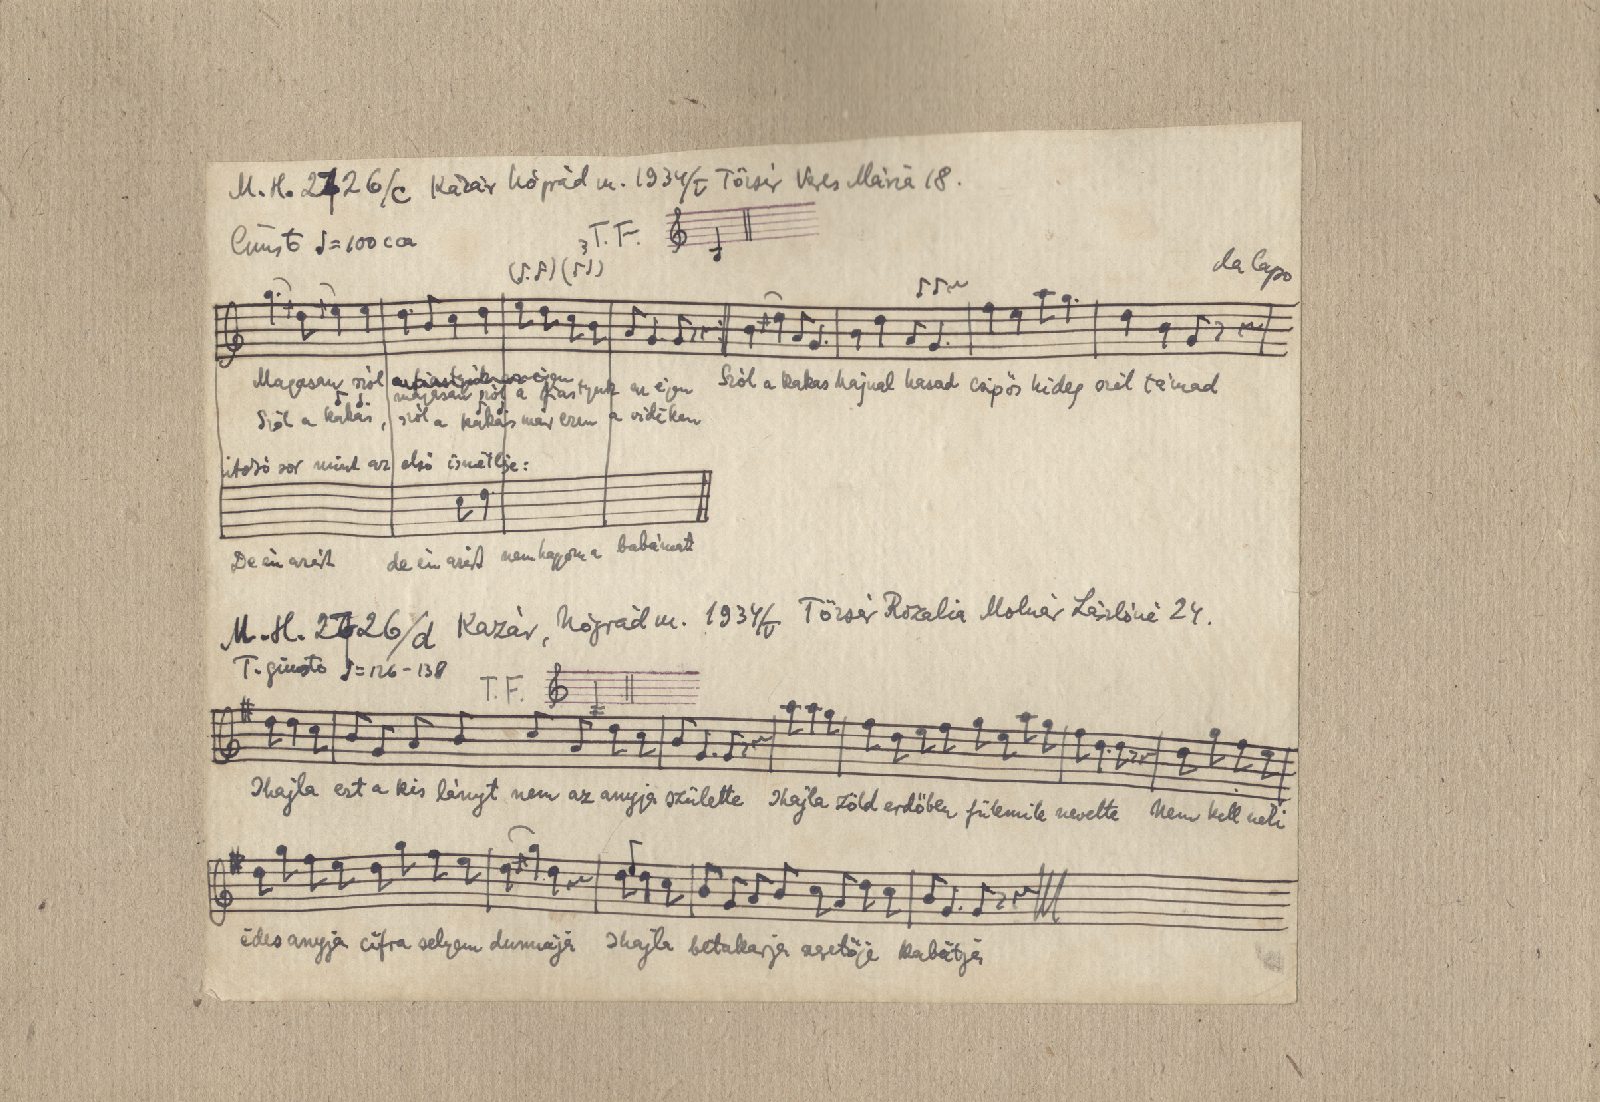 M. H. 2726/c Kazár Nógrád m. 1934/V Tőzsér Veres Mária 18.
Giusto ♩=100 ca
T. F.
da Capo
Magasan szól magasan szól a fiastyúk az éjen Szól a kakas hajnal hasad csipős hideg szél támad
Szól a kakas, szól a kakas már ezen a vidéken
utolsó sor mint az első ismétlése:
De én azért de én azért nem hagyom a babámat
M. H. 2726/d Kazár, Nógrád m. 1934/V Tőzsér Rozalia Molnár Lászlóné 24.
T. giusto ♩=126-138
T. F.
Ihajla ezt a kis lányt nem az anyja születte Ihajla zöld erdőben fülemile nevelte Nem kell neki
édes anyja cifra selyem dunnája Ihajla betakarja szeretője kabátja